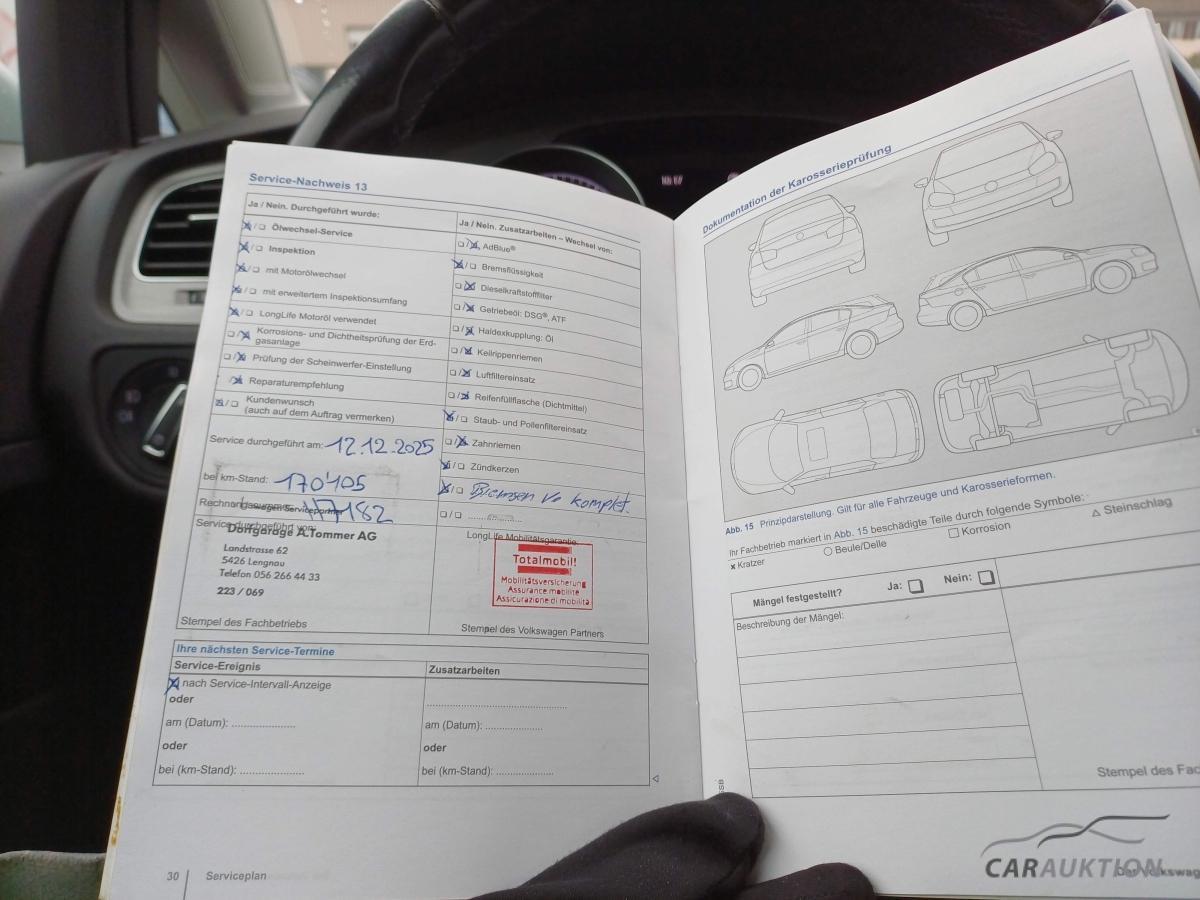 Service-Nachweis 13
Ja / Nein. Durchgeführt wurde:
Ölwechsel-Service
Inspektion
mit Motorölwechsel
mit erweitertem Inspektionsumfang
LongLife Motoröl verwendet
Korrosions- und Dichtheitsprüfung der Erd-
gasanlage
Prüfung der Scheinwerfer-Einstellung
Reparaturempfehlung
Kundenwunsch
(auch auf dem Auftrag vermerken)
Service durchgeführt am: 12.12.2025
bei km-Stand: 170'105
117182
Service durchgeführt von:
Dorfgarage A.Tommer AG
Landstrasse 62
5426 Lengnau
Telefon 056 266 44 33
223 / 069
Stempel des Fachbetriebs
Ja / Nein. Zusatzarbeiten – Wechsel von:
AdBlue®
Bremsflüssigkeit
Dieselkraftstofffilter
Getriebeöl: DSG®, ATF
Haldexkupplung: Öl
Keilrippenriemen
Luftfiltereinsatz
Reifenfüllflasche (Dichtmittel)
Staub- und Pollenfiltereinsatz
Zahnriemen
Zündkerzen
Bremsen Vo komplet.
LongLife Mobilitätsgarantie
Totalmobil!
Mobilitätsversicherung
Assurance mobilité
Assicurazione di mobilità
Stempel des Volkswagen Partners
Ihre nächsten Service-Termine
Service-Ereignis
Zusatzarbeiten
nach Service-Intervall-Anzeige
oder
am (Datum): ....................
am (Datum): ..................
oder
oder
bei (km-Stand): ....................
bei (km-Stand): ..................
30 Serviceplan
Dokumentation der Karosserieprüfung
Abb. 15 Prinzipdarstellung. Gilt für alle Fahrzeuge und Karosserieformen.
Ihr Fachbetrieb markiert in Abb. 15 beschädigte Teile durch folgende Symbole:
x Kratzer
Beule/Delle
Korrosion
Steinschlag
Mängel festgestellt? Ja: Nein:
Beschreibung der Mängel:
Stempel des Fac
CARAUKTION